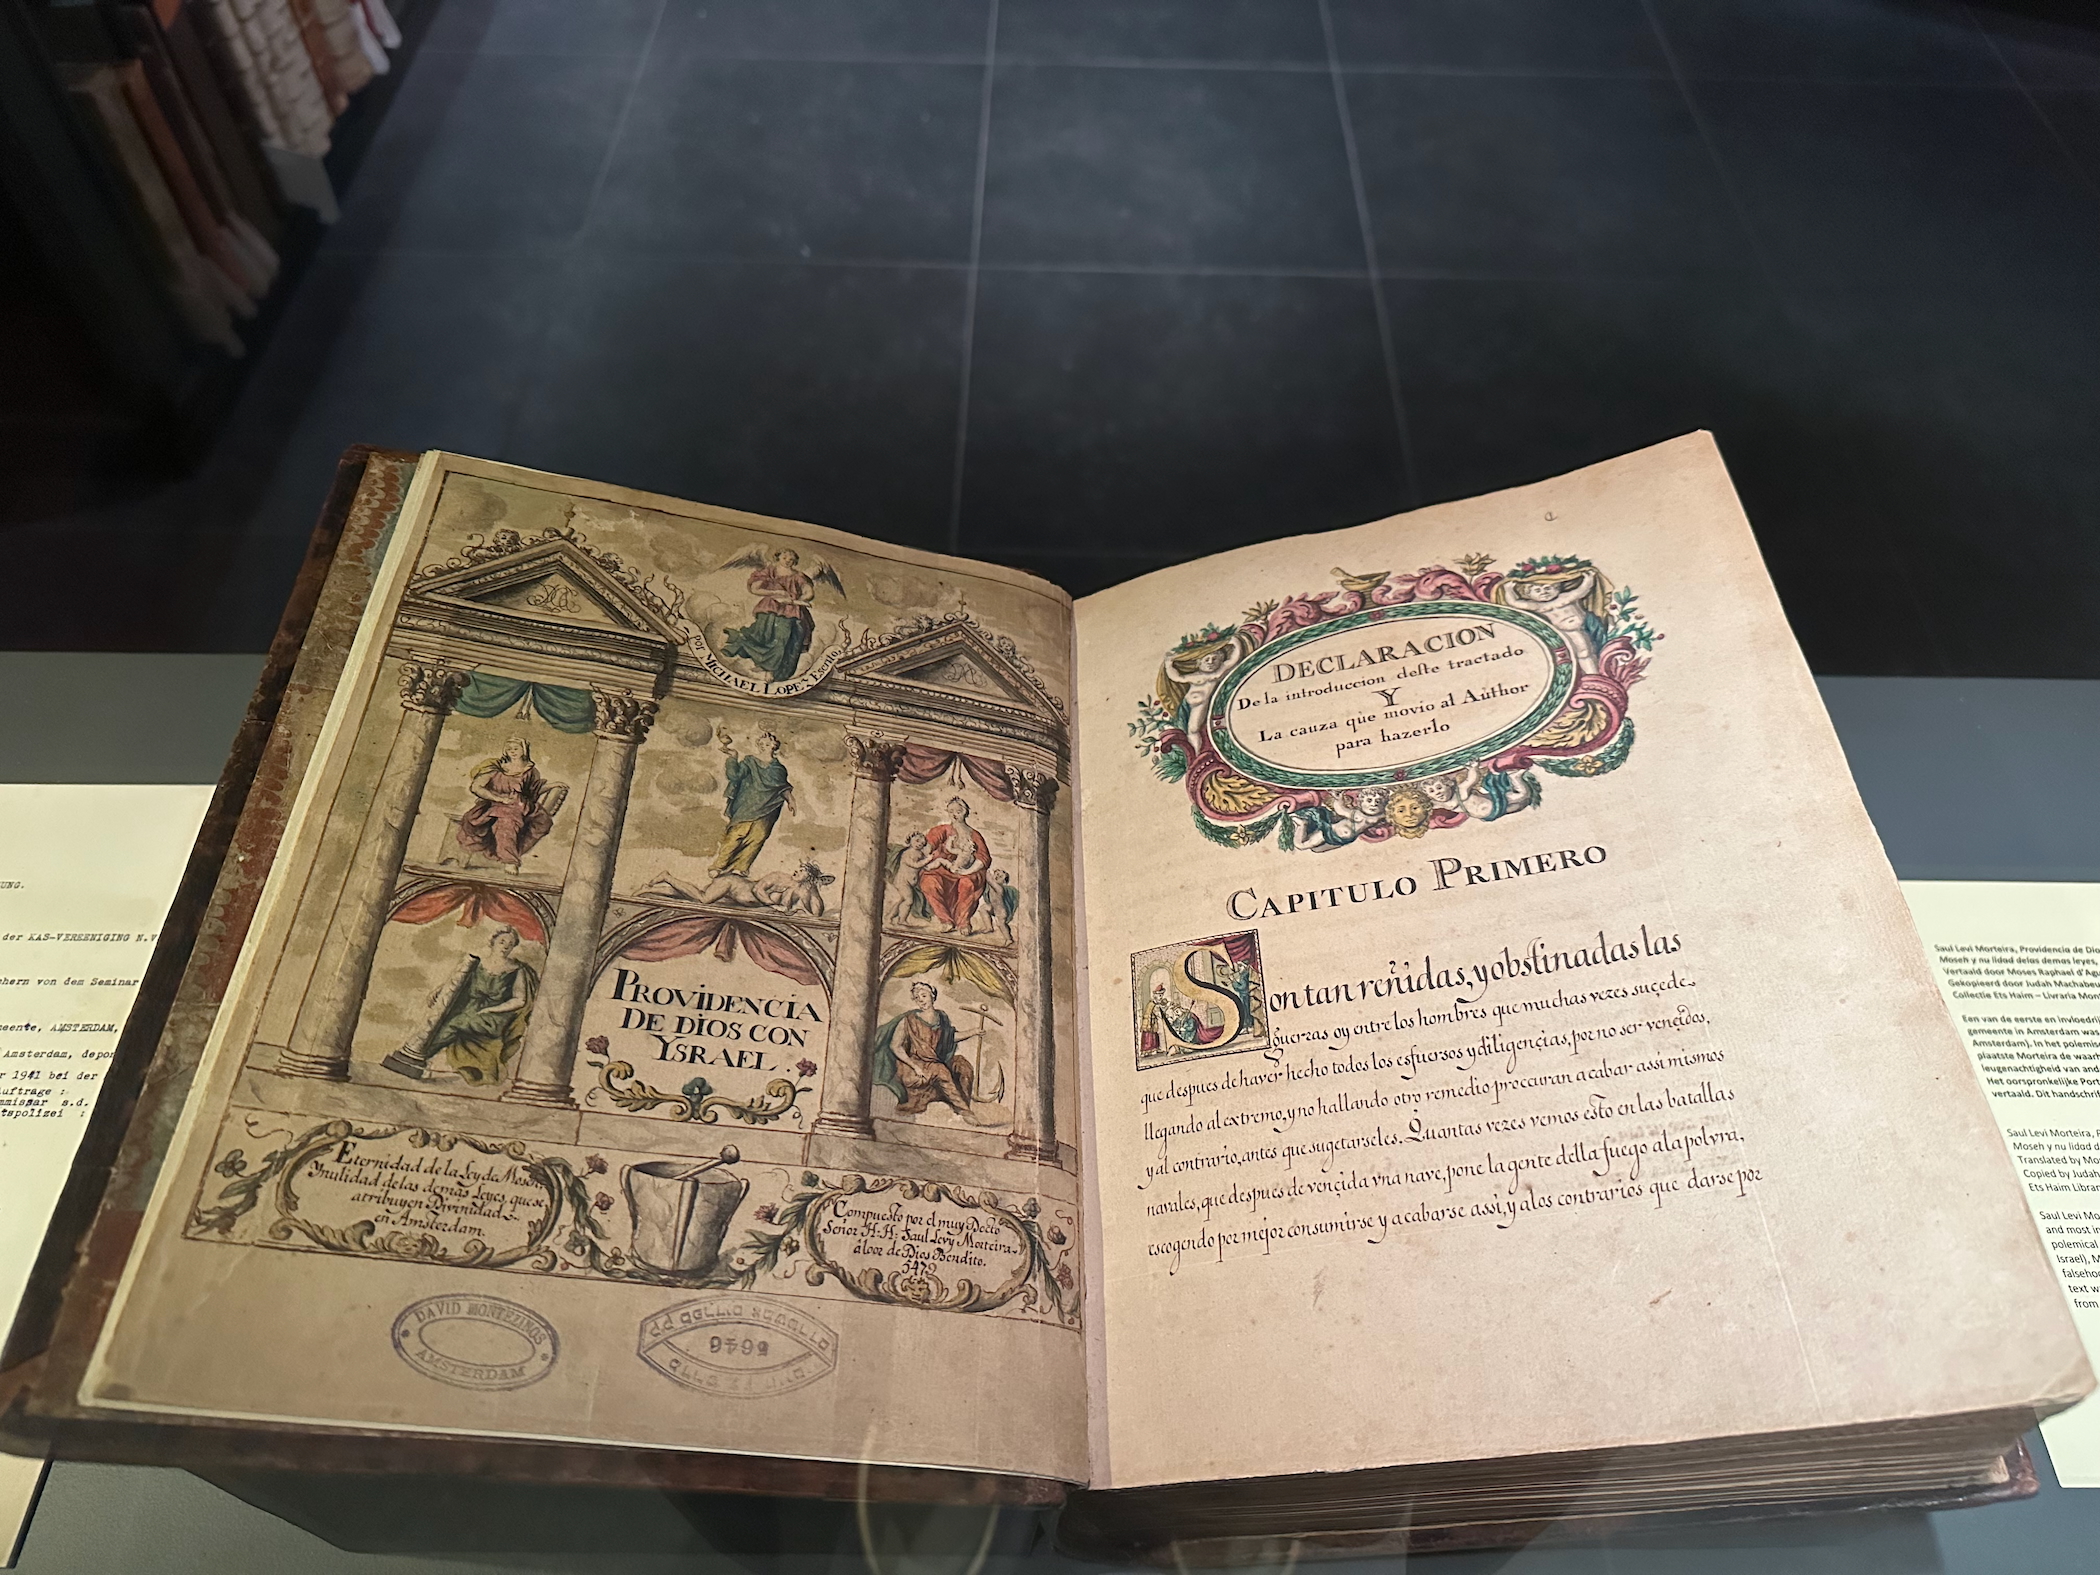 por MICHAEL LOPEZ Escrito.
PROVIDENCIA
DE DIOS CON
YSRAEL.
Eternidad de la Ley de Moseh,
Ynulidad de las demas Leyes, que se
atribuyen Divinidad
en Amsterdam.
Compuesto por el muy Docto
Señor H.H: Saul Levy Morteira
à loor de Dios Bendito.
5472
DAVID MONTEZINOS
AMSTERDAM
5646
DECLARACION
De la introduccion deste tractado
Y
La cauza que movio al Author
para hazerlo
CAPITULO PRIMERO
Son tan reñidas, y obstinadas las
guerras oy entre los hombres que muchas vezes suçede
que despues de haver hecho todos los esfuersos y diligençias, por no ser vençidos,
llegando al extremo, y no hallando otro remedio proccuran acabar assi mismos
y al contrario, antes que sugetarseles. Quantas vezes vemos esto en las batallas
navales, que despues de vençida vna nave, pone la gente della fuego a la polvra,
escogendo por mejor consumirse y acabarse assi, y a los contrarios que darse por
UNG.
der KAS-VEREENIGING N.V
chern von dem Seminar
AMSTERDAM,
Amsterdam, depo
r 1941 bei der
uftrage :
mmissar s.d.
tspolizei :
Saul Levi Morteira, Providencia de Dio
Moseh y nu lidad delas demas leyes,
Vertaald door Moses Raphael d'Agu
Gekopieerd door Judah Machabeu
Collectie Ets Haim – Livraria Mon
Een van de eerste en invloedrij
gemeente in Amsterdam was
Amsterdam). In het polemis
plaatste Morteira de waarh
leugenachtigheid van and
Het oorspronkelijke Por
vertaald. Dit handschrif
Saul Levi Morteira, P
Moseh y nu lidad d
Translated by Mo
Copied by Judah
Ets Haim Librar
Saul Levi Mo
and most in
polemical
Israel), M
falseho
text w
from